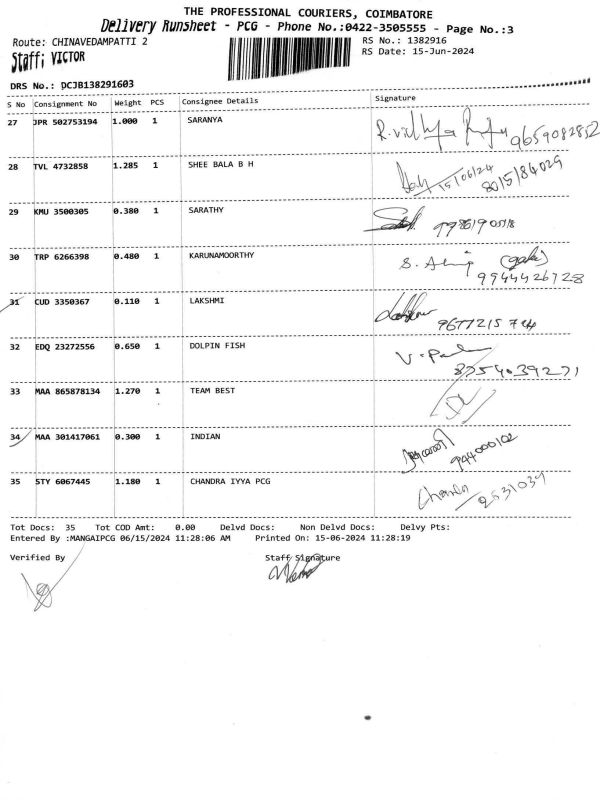 THE PROFESSIONAL COURIERS, COIMBATORE
Delivery Runsheet - PCG - Phone No.:0422-3505555 - Page No.:3
Route: CHINAVEDAMPATTI 2
RS No.: 1382916
Staff; VICTOR
RS Date: 15-Jun-2024
DRS No.: DCJB138291603
S No Consignment No Weight PCS Consignee Details Signature
27 JPR 502753194 1.000 1 SARANYA 9659082852
28 TVL 4732858 1.285 1 SHEE BALA B H 15/06/24 8015184029
29 KMU 3500305 0.380 1 SARATHY
30 TRP 6266398 0.480 1 KARUNAMOORTHY
9944426728
31 CUD 3350367 0.110 1 LAKSHMI
32 EDQ 23272556 0.650 1 DOLPIN FISH
8754039271
33 MAA 865878134 1.270 1 TEAM BEST
34 MAA 301417061 0.300 1 INDIAN
35 STY 6067445 1.180 1 CHANDRA IYYA PCG
Tot Docs: 35 Tot COD Amt: 0.00 Delvd Docs: Non Delvd Docs: Delvy Pts:
Entered By :MANGAIPCG 06/15/2024 11:28:06 AM Printed On: 15-06-2024 11:28:19
Verified By Staff Signature